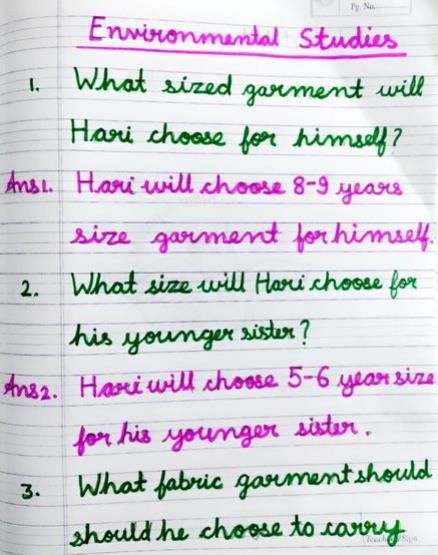 Pg. No.
Environmental Studies
1. What sized garment will
Hari choose for himself?
Ans1. Hari will choose 8-9 years
size garment for himself.
2. What size will Hari choose for
his younger sister?
Ans2. Hari will choose 5-6 year size
for his younger sister.
3. What fabric garment should
should he choose to carry
Teacher's Sign